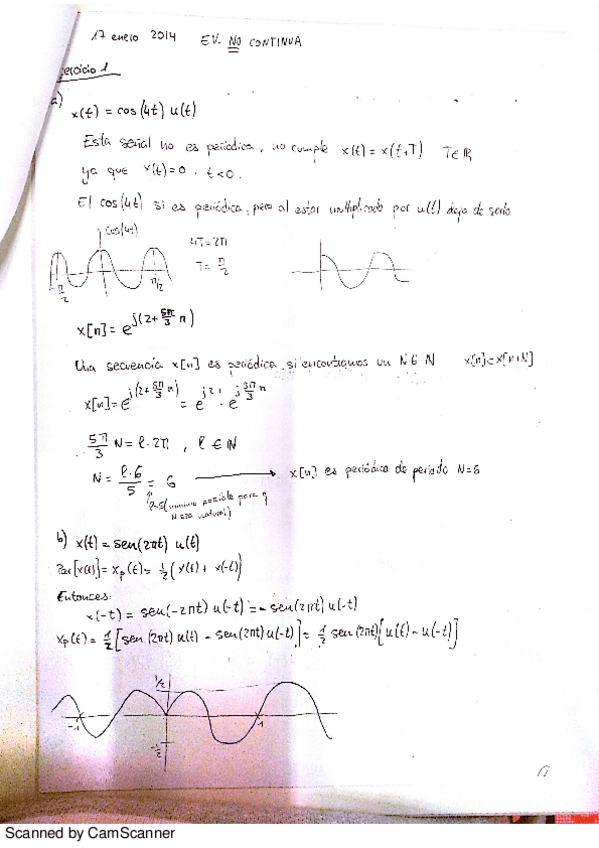 17 enero 2014 EV. NO CONTINUA
ercicio 1
a)
x(t) = cos(4t) u(t)
Esta señal no es periódica, no cumple x(t) = x(t+T) T∈ℝ
ya que x(t)=0 . t<0.
El cos(4t) si es periódica, pero al estar multiplicado por u(t) deja de serlo
cos(4t)
4T=2π
T= π/2
π/2 π/2
x[n] = e^j(2+5π/3 n)
Una secuencia x[n] es periódica, si encontramos un N∈ℕ x[n]=x[n+N]
x[n]=e^j(2+5π/3 n) = e^j2 · e^j5π/3 n
5π/3 N = ℓ·2π , ℓ∈ℕ
N = ℓ·6/5 = 6 → x[n] es periódica de periodo N=6
ℓ=5 (mínimo posible para q
N sea natural)
b) x(t) = sen(2πt) u(t)
Par[x(t)] = xp(t) = 1/2 (x(t) + x(-t))
Entonces:
x(-t) = sen(-2πt) u(-t) = - sen(2πt) u(-t)
xp(t) = 1/2 [sen(2πt) u(t) - sen(2πt) u(-t)] = 1/2 sen(2πt) [u(t) - u(-t)]
1/2
-1 1
-1/2
Scanned by CamScanner